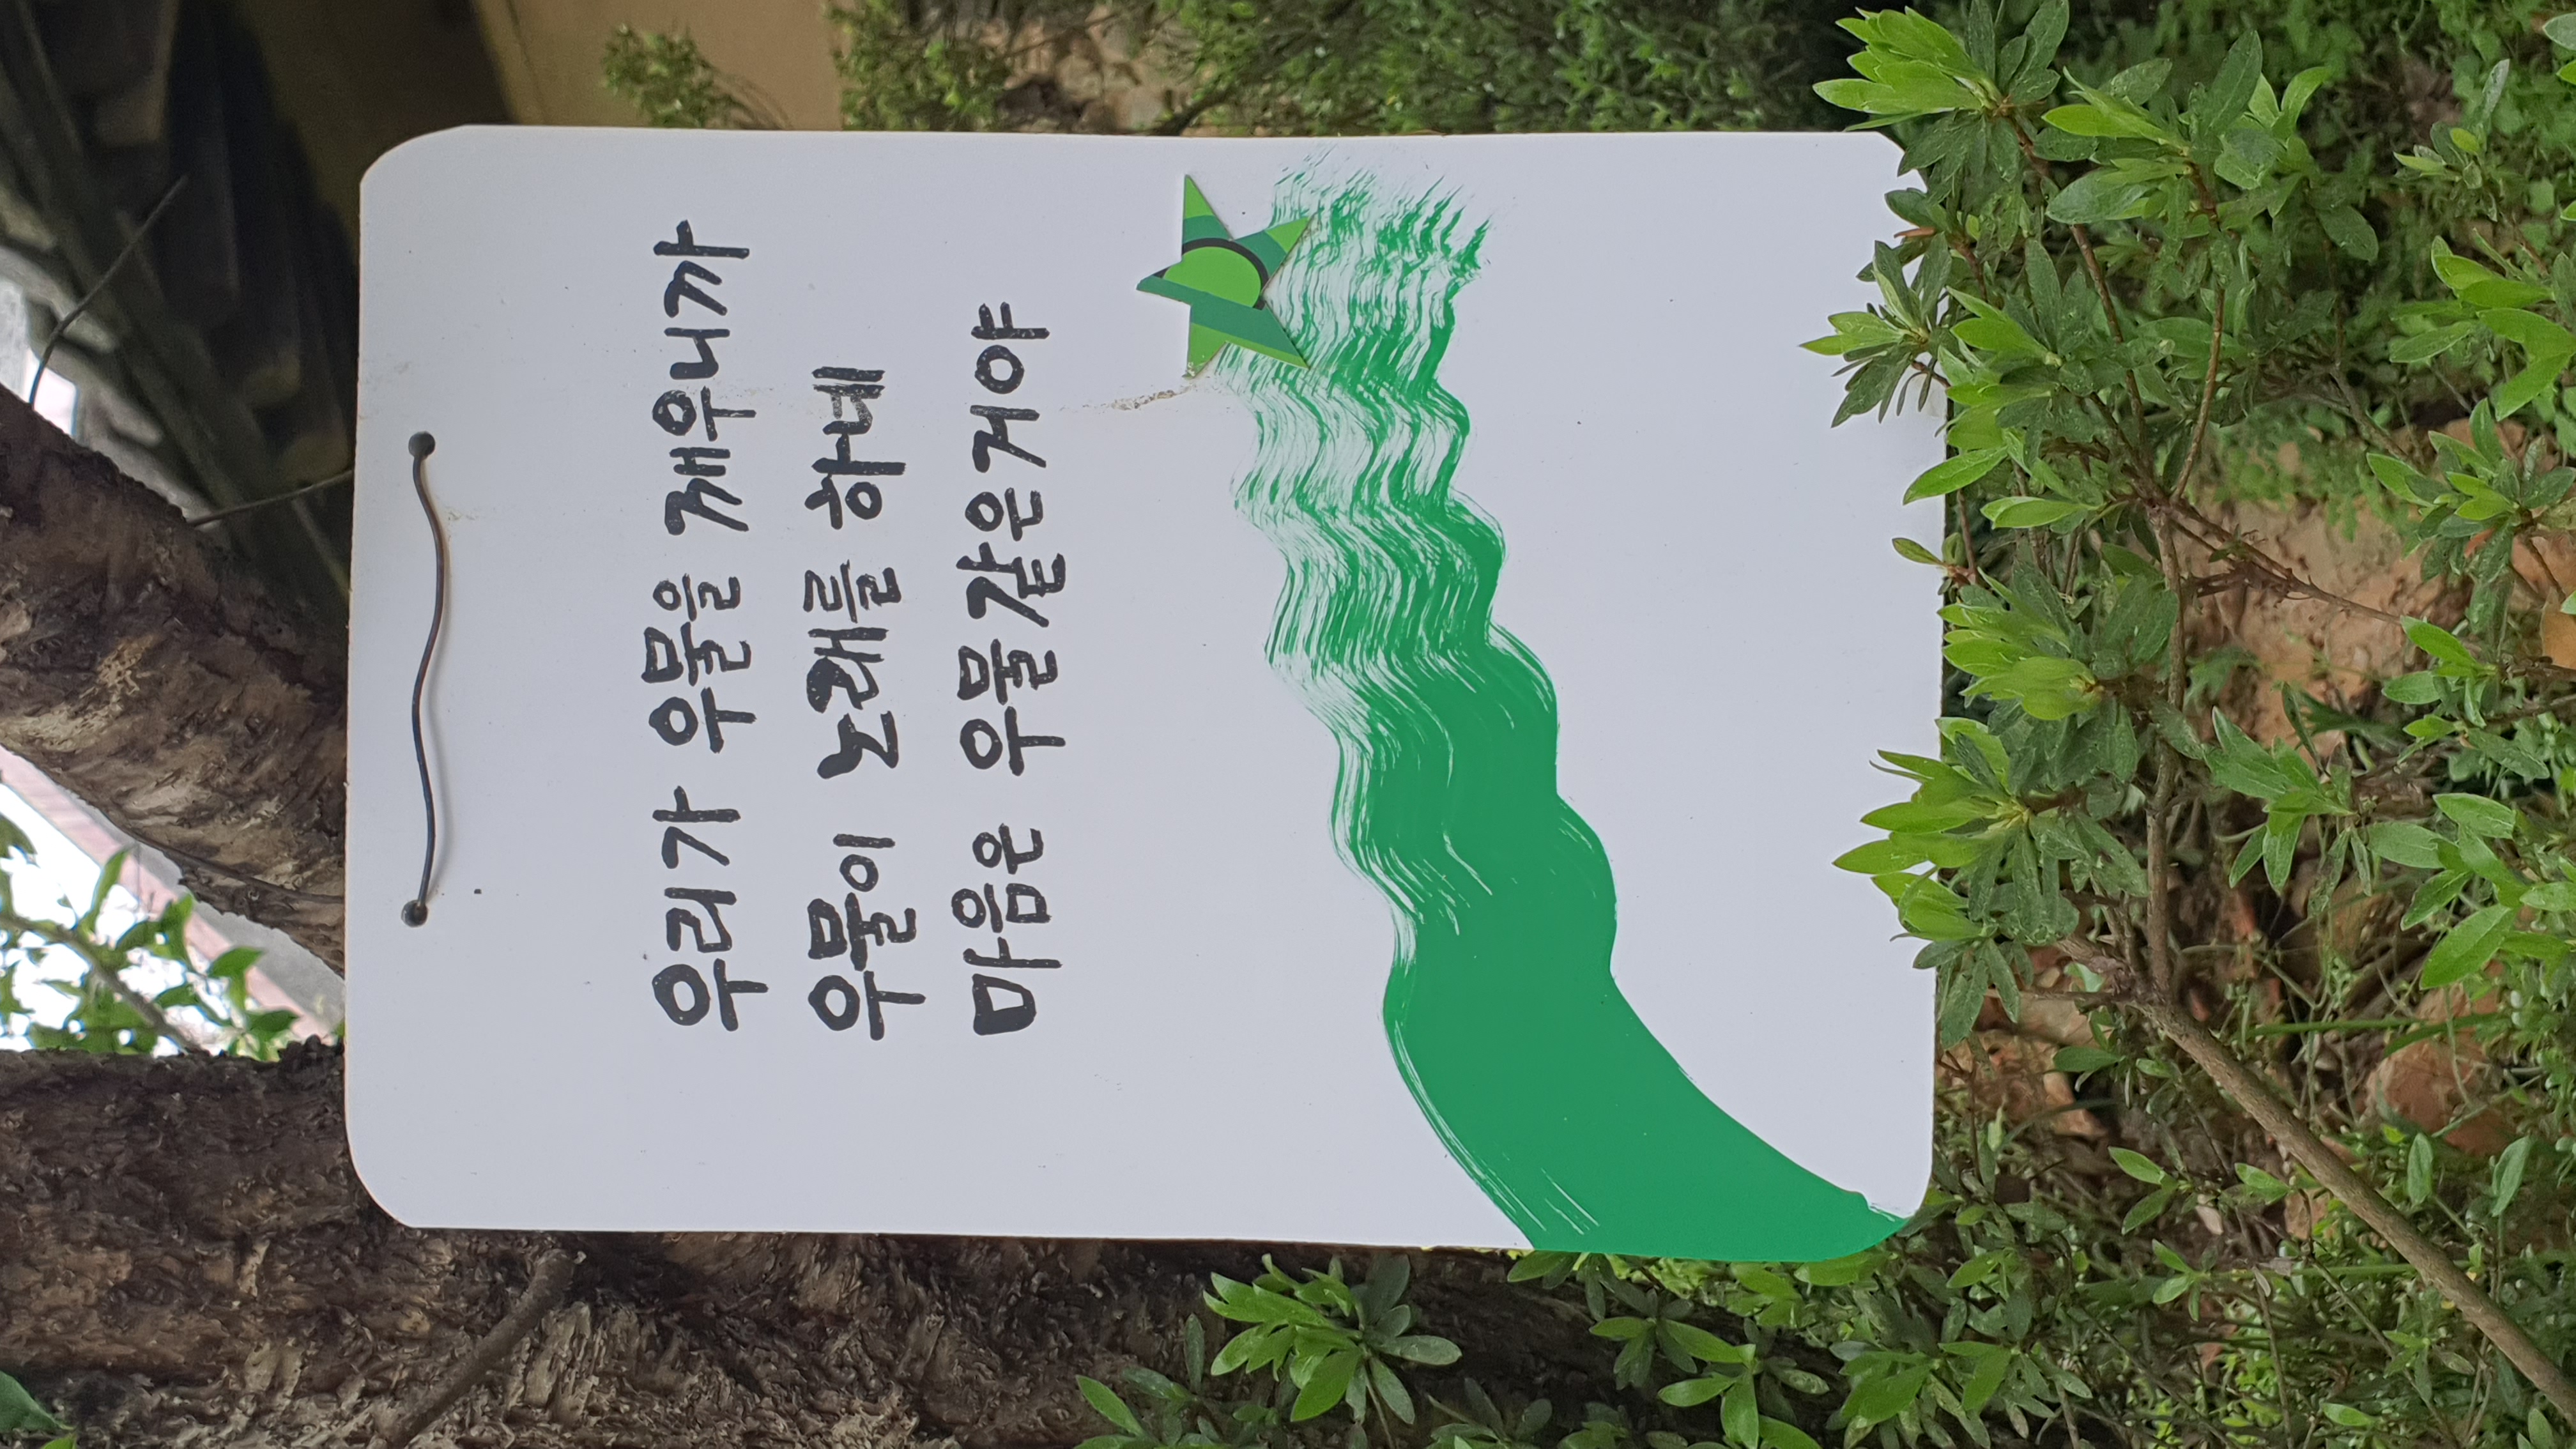 우리가 우물을 깨우니까
우물이 노래를 하네
마음은 우물 같은거야